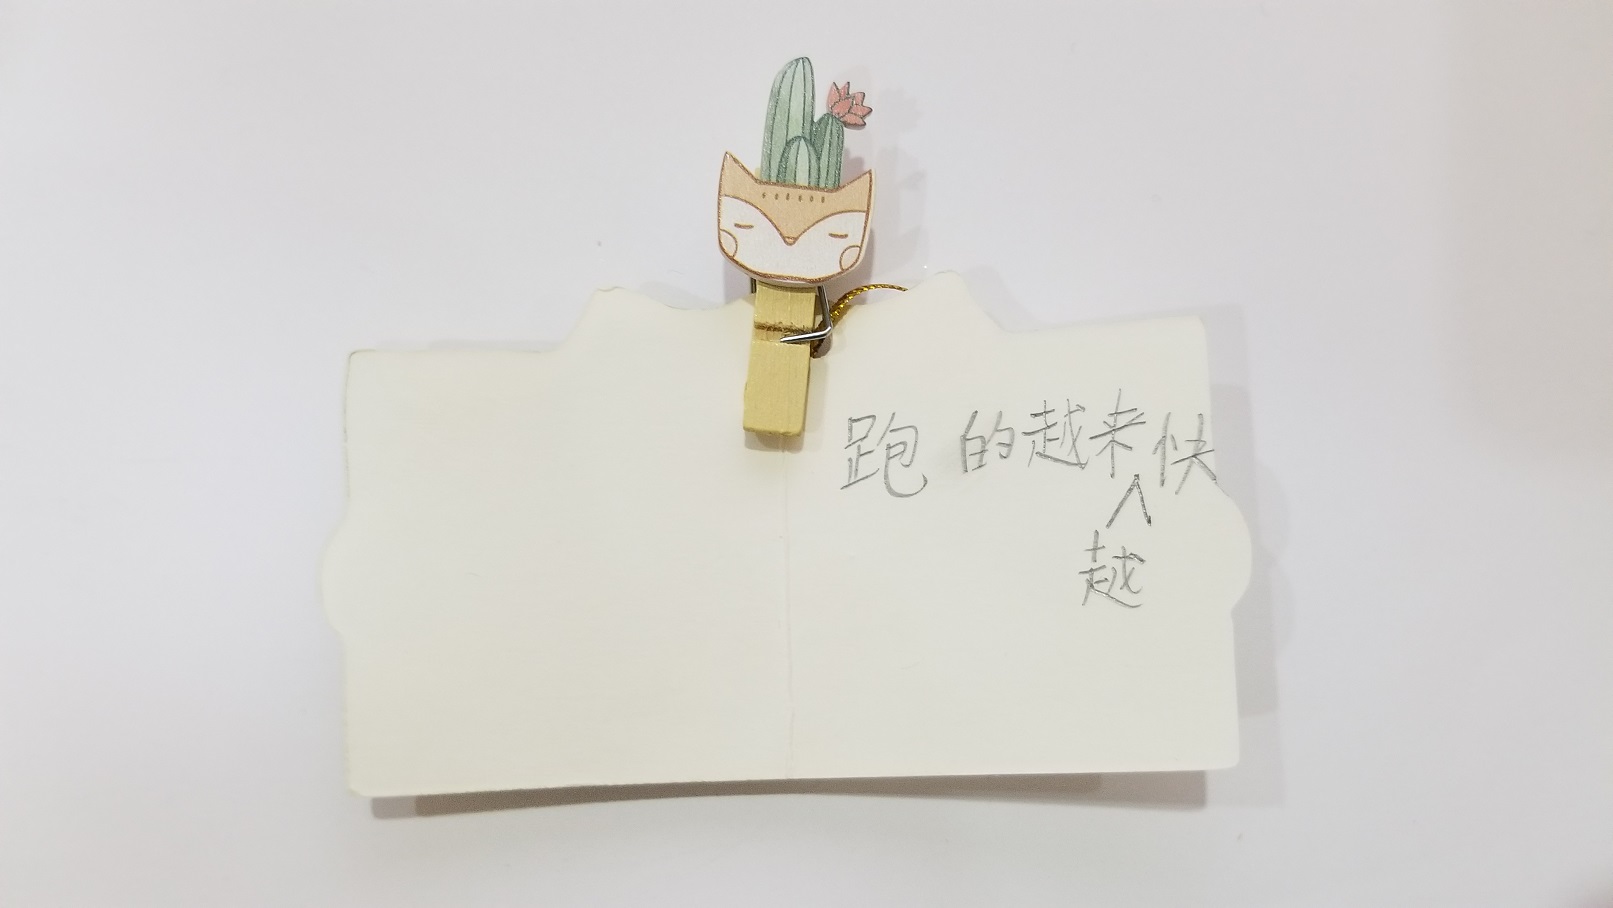 跑的越来越快